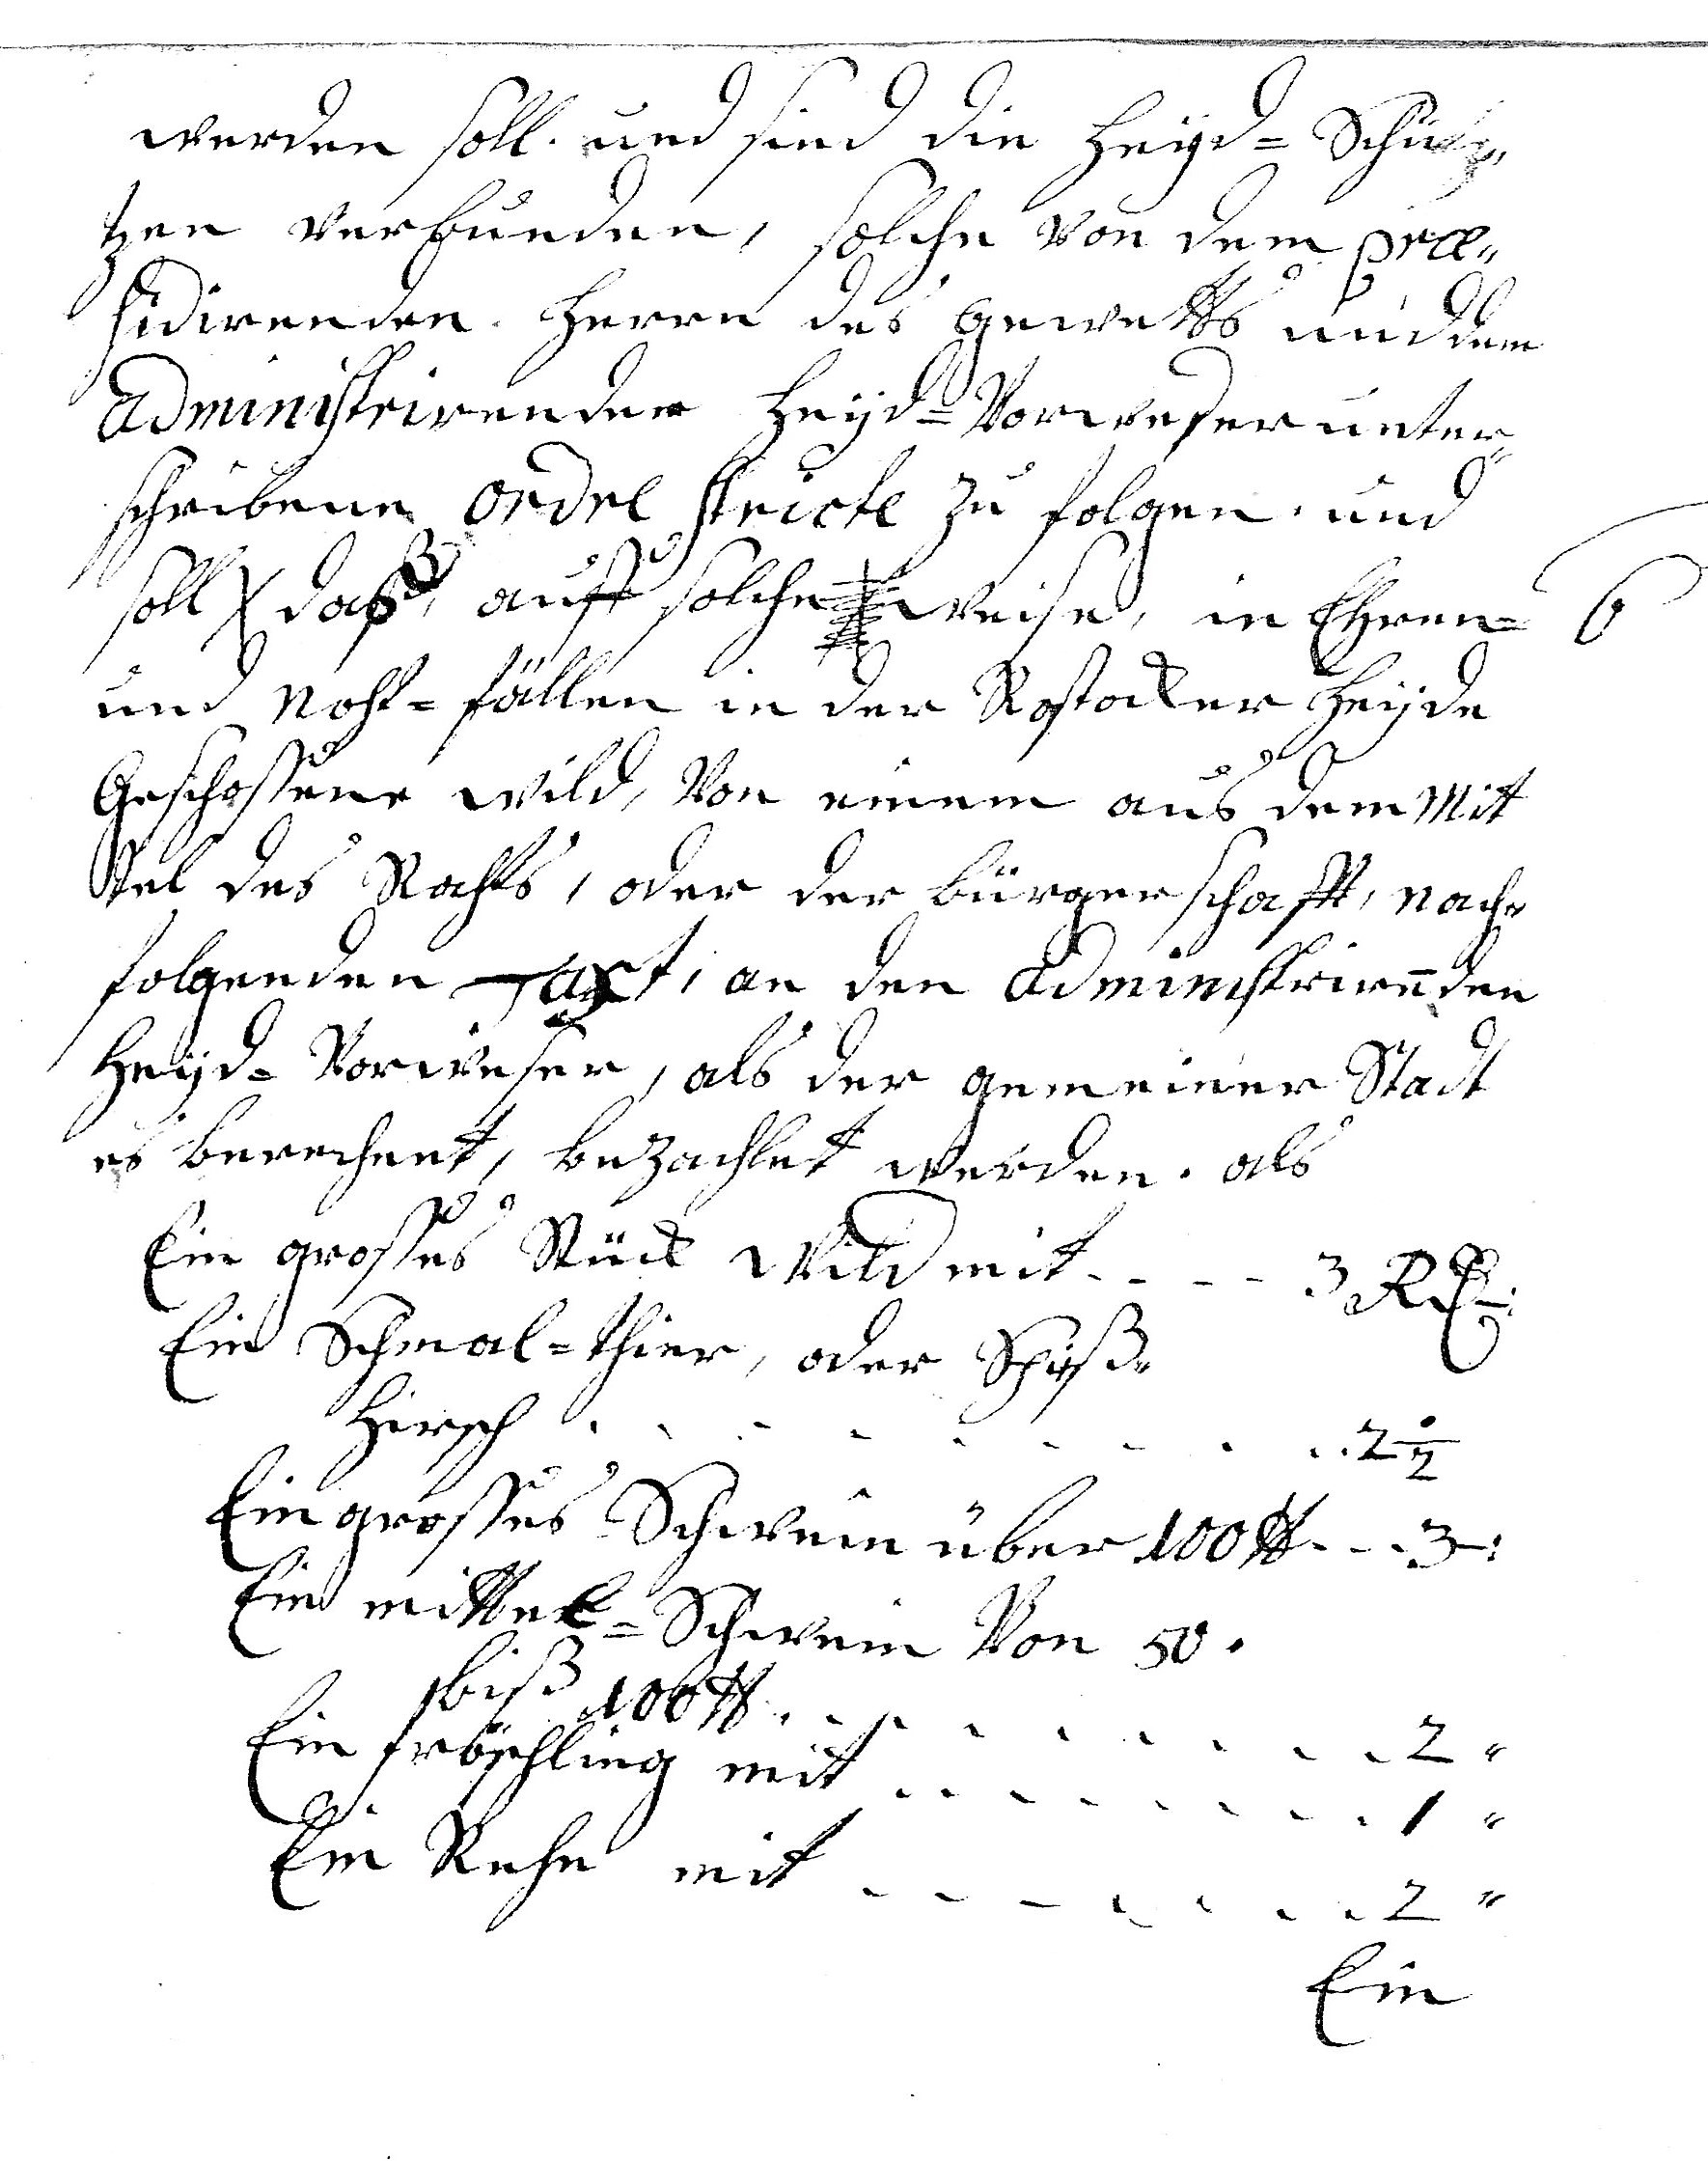 werden soll. und sind die Heyd= Schütz„
tzen verbunden, solche von dem prae„
sidirenden Herrn des Gewetts und dem
Administrirenden Heyd=Vorweser unter„
schribene Ordre stricte zu folgen. und
soll daß, auff solche weise, in Ehren=
und Noht=fällen in der Rostocker Heyde
Geschossene wild, Von einem aus dem Mit
tel des Rahts, oder der bürgerschafft, nach„
folgenden Taxt, an den Administrirenden
Heyd= Vorweser, als der gemeiner Stadt
es berechent, bezachlet werden. als
Ein grosses Stück Wild mit - - - - 3 Rthl:
Ein Schmal=thier, oder Spiß„
Hirsch - - - - - - - - - 2 1/2
Ein grosses Schwein über 100 ℔ - - - 3 :
Ein mittel=Schwein Von 50.
biß 100 ℔ - - - - - - - - - 2 „
Ein fröschling mit - - - - - - - - 1 „
Ein Rehe mit - - - - - - - - 2 „
Ein